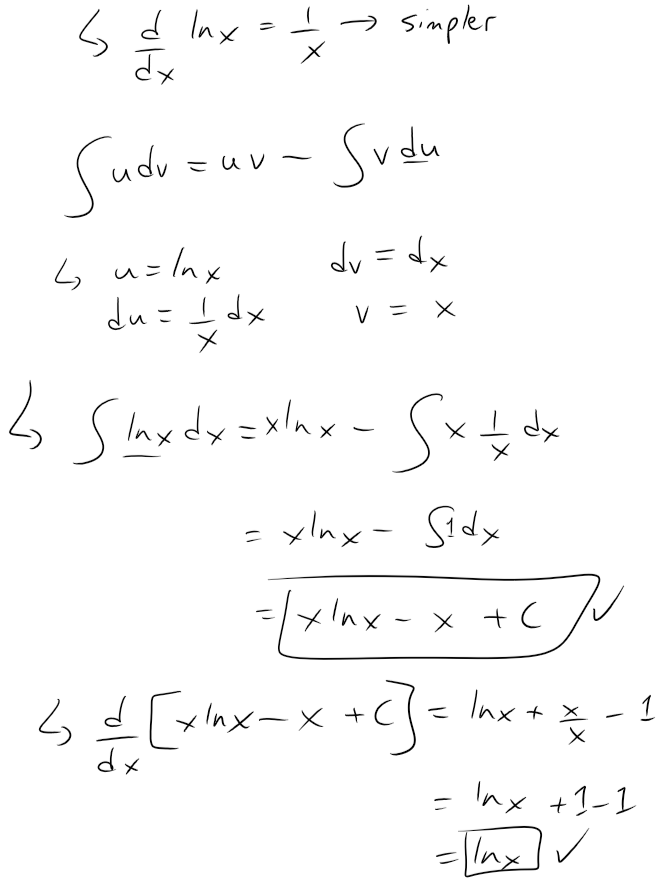 ↳ d/dx ln x = 1/x → simpler
∫ u dv = uv − ∫ v du
↳ u = ln x dv = dx
du = 1/x dx v = x
↳ ∫ ln x dx = x ln x − ∫ x 1/x dx
= x ln x − ∫ 1 dx
= x ln x − x + C ✓
↳ d/dx [x ln x − x + C] = ln x + x/x − 1
= ln x + 1 − 1
= ln x ✓